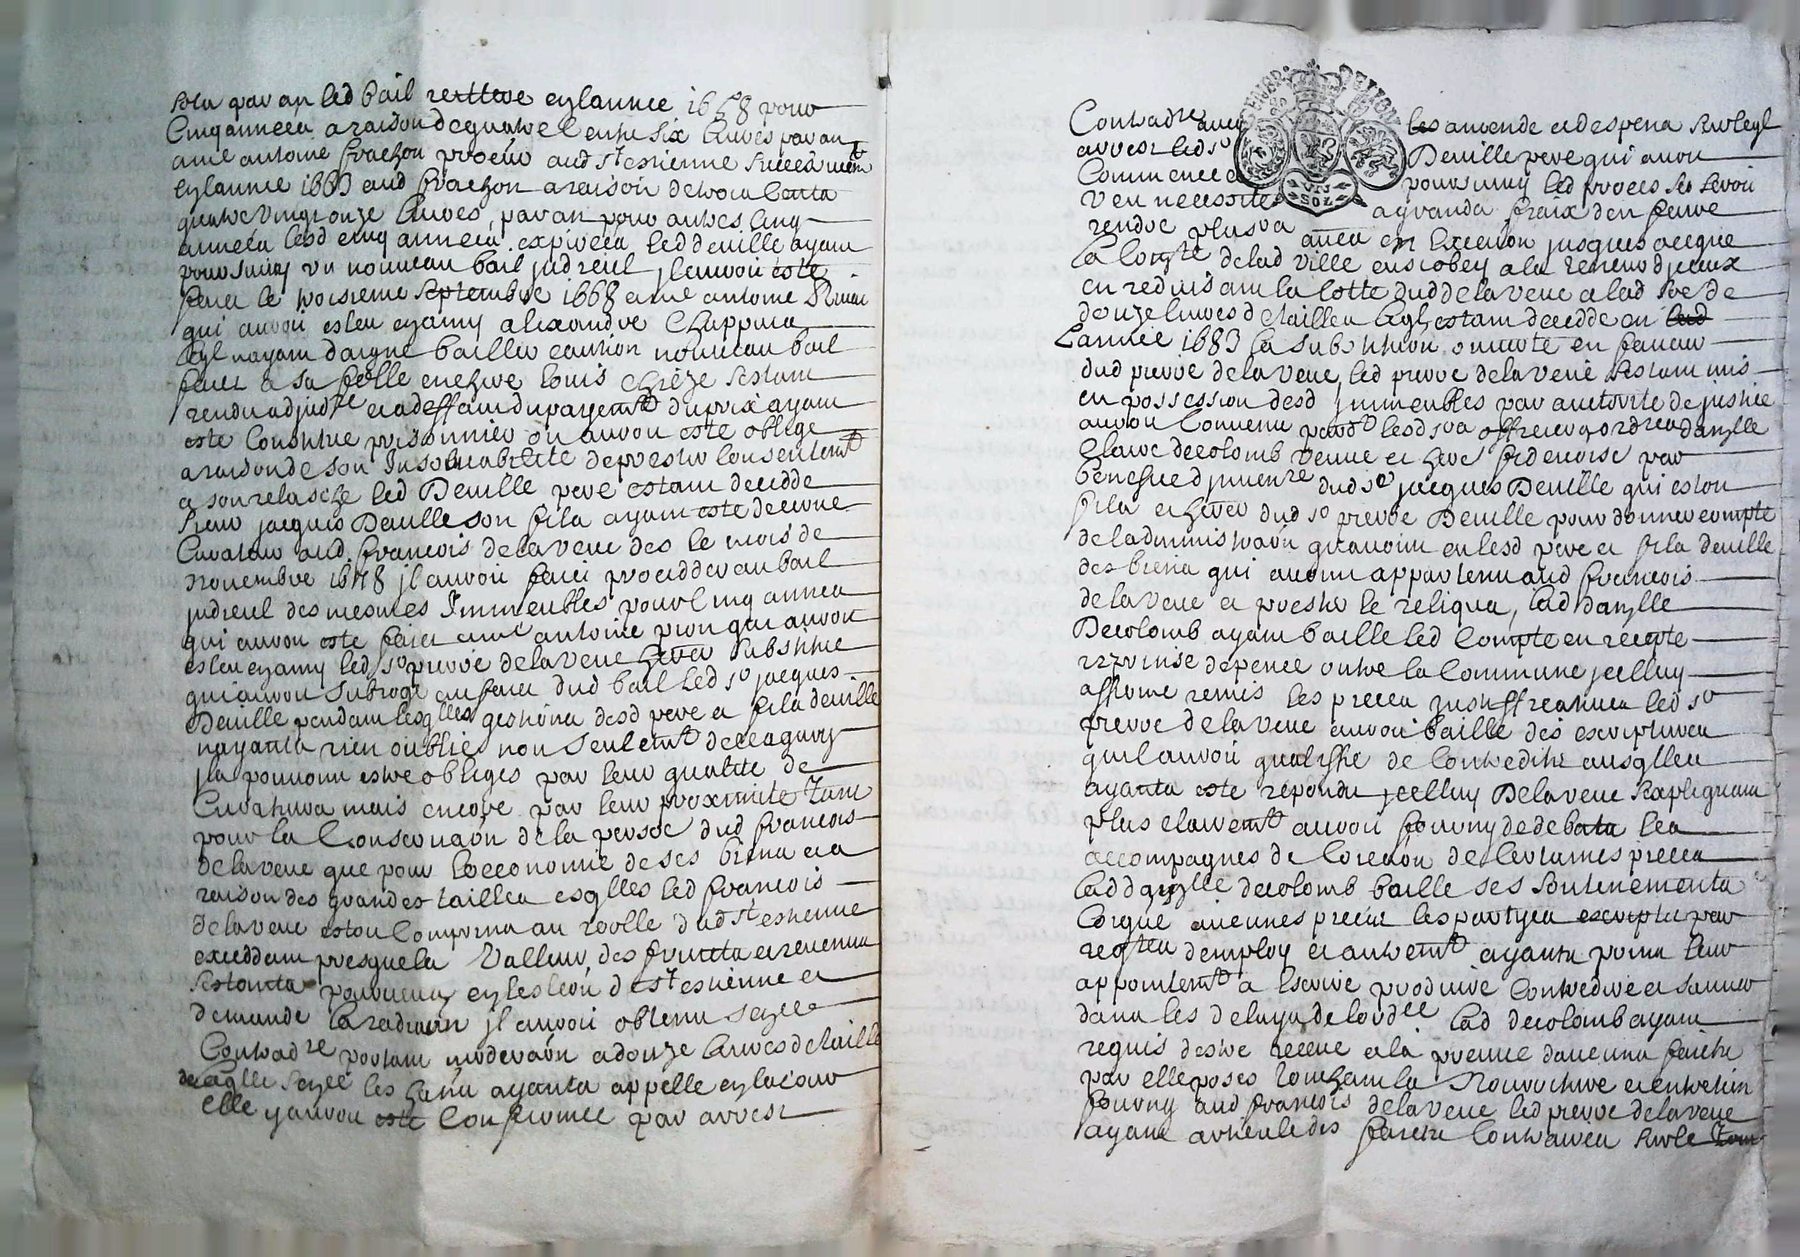 solz par an led bail reitteré en lannee 1658 pour
Cinq années a raison de quatre cents six livres par an
a me antoine frachon procur aud st estienne successivemt
en lannee 1663 aud frachon a raison de trois cents
quatre vingt onze livres par an pour autres cinq
années lesd cinq années expirées led deville ayant
poursuivy un nouveau bail judiciel il auroit esté
faict le troisieme septembre 1668 a me antoine
qui auroit esleu en amy alexandre Chappuis
leql nayant daigné bailler caution nouveau bail
faict a sa folle enchere louis chieze sestant
rendu adjudre et a deffaut du payemt du prix ayant
esté constitué prisonnier on auroit esté obligé
a raison de son insolvabilité de prester consentemt
a son relasche led Deville pere estant decedde
sieur jacques Deville son fils ayant esté decerné
Curateur aud francois delaveue des le mois de
novembre 1678 il auroit faict proceder au bail
judiciel des mesmes Immeubles pour cinq années
qui auroit esté faict a me antoine prion qui auroit
esleu en amy led sr prevot delaveue heritier substitué
qui auroit subrogé au faict dud bail led sr jacques
Deville pendant lesqlles gestions desd pere et fils deville
nayants rien oublié non seulemt de ce a quoy
ils pouvoint estre obligés par leur qualité de
Curateurs mais encore par leur proximité Tant
pour la Conservaon de la persoe dud francois
delaveue que pour loeconomie de ses biens et a
raison des grandes tailles esqlles led francois
delaveue estoit Comprins au roolle dud st estienne
exceddant presque la valleur des fruicts et revenus
sestants pourveus en leslection de st estienne et
demandé la radiaon il auroit obtenu sence
Contradre portant moderaon a douze livres de taille
de laqlle sence les hans ayants appellé en la cour
elle y auroit esté Confirmée par arrest
Contradre avec les amende et despens sur leql
arrest led sr Deville pere qui avoit
Commencé et poursuivy led proces se seroit
veu necessité a grands fraix den faire
rendre plusrs aues en execuon jusques a ce que
la comté de lad ville eust obey a la teneur diceux
en reduisant la cotte dud delaveue a lad soe de
douze livres de tailles leql estant decedde en
lannée 1683 la substituon ouverte en faveur
dud prevot delaveue led prevot delaveue sestant mis
en possession desd immeubles par auctorité de justice
auroit Convenu pardt lesd srs officiers ordres danlle
Claire decolomb veuve et here fideicoire par
benefice dinventre dud sr jacques Deville qui estoit
fils et heritier dud sr prevot Deville pour donner compte
de ladministraon quavoint eu lesd pere et fils deville
des biens qui avoint appartenu aud francois
delaveue et prester le reliqua, lad danlle
Decolomb ayant baillé led Compte en recepte
reprinse depence outre la Commune jcelluy
affirmé remis les pieces justifficatives led sr
prevot delaveue auroit baillé des escriptures
quil auroit qualifié de Contredits ausqlles
ayants esté répondu jcelluy Delaveue sexpliquant
plus clairemt auroit fourny de debats les
accompagnés de loreaon de certaines pieces
lad danlle decolomb baillé ses soutenements
Corqué aucunes pieces les partyes escriptes par
regtres demploy et autremt ayants prins leur
appointemt a escrire produire Contredire et sauver
dans les delays de lordce lad decolomb ayant
requis destre receue a la preuve daucuns faicts
par elle posés touchant la Nourriture et entretien
fourny aud francois delaveue led prevot delaveue
ayant articulé des faicts Contraires sur le